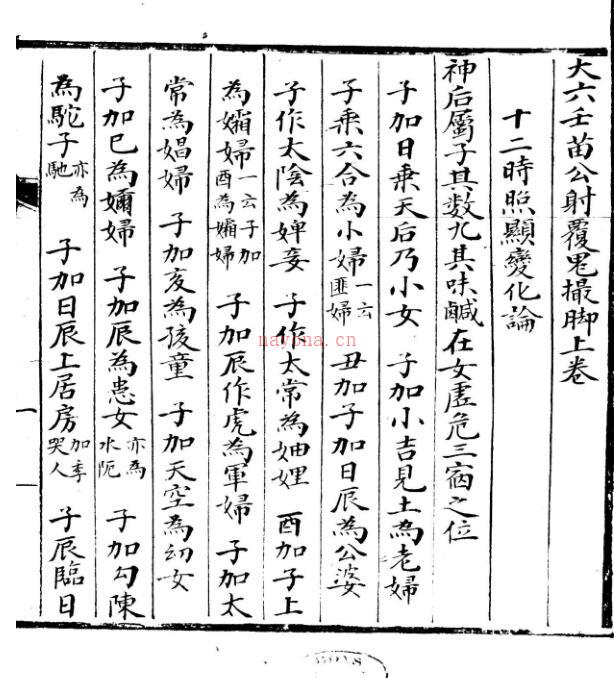 大六壬苗公射覆鬼撮脚上卷
十二時照顯變化論
神后屬子其数九其味鹹在女虛危三宿之位
子加日乗天后乃小女 子加小吉見土為老婦
子乘六合為小婦一云匪婦 丑加子加日辰為公婆
子作太陰為婢妾 子作太常為妯娌 酉加子上
為孀婦一云子加酉為孀婦 子加辰作虎為軍婦 子加太
常為娼婦 子加亥為孩童 子加天空為幼女
子加巳為嬭婦 子加辰為患女亦為水阨 子加勾陳
為駝子亦為馳 子加日辰上居房加季哭人 子辰臨日
一
nayona.cn